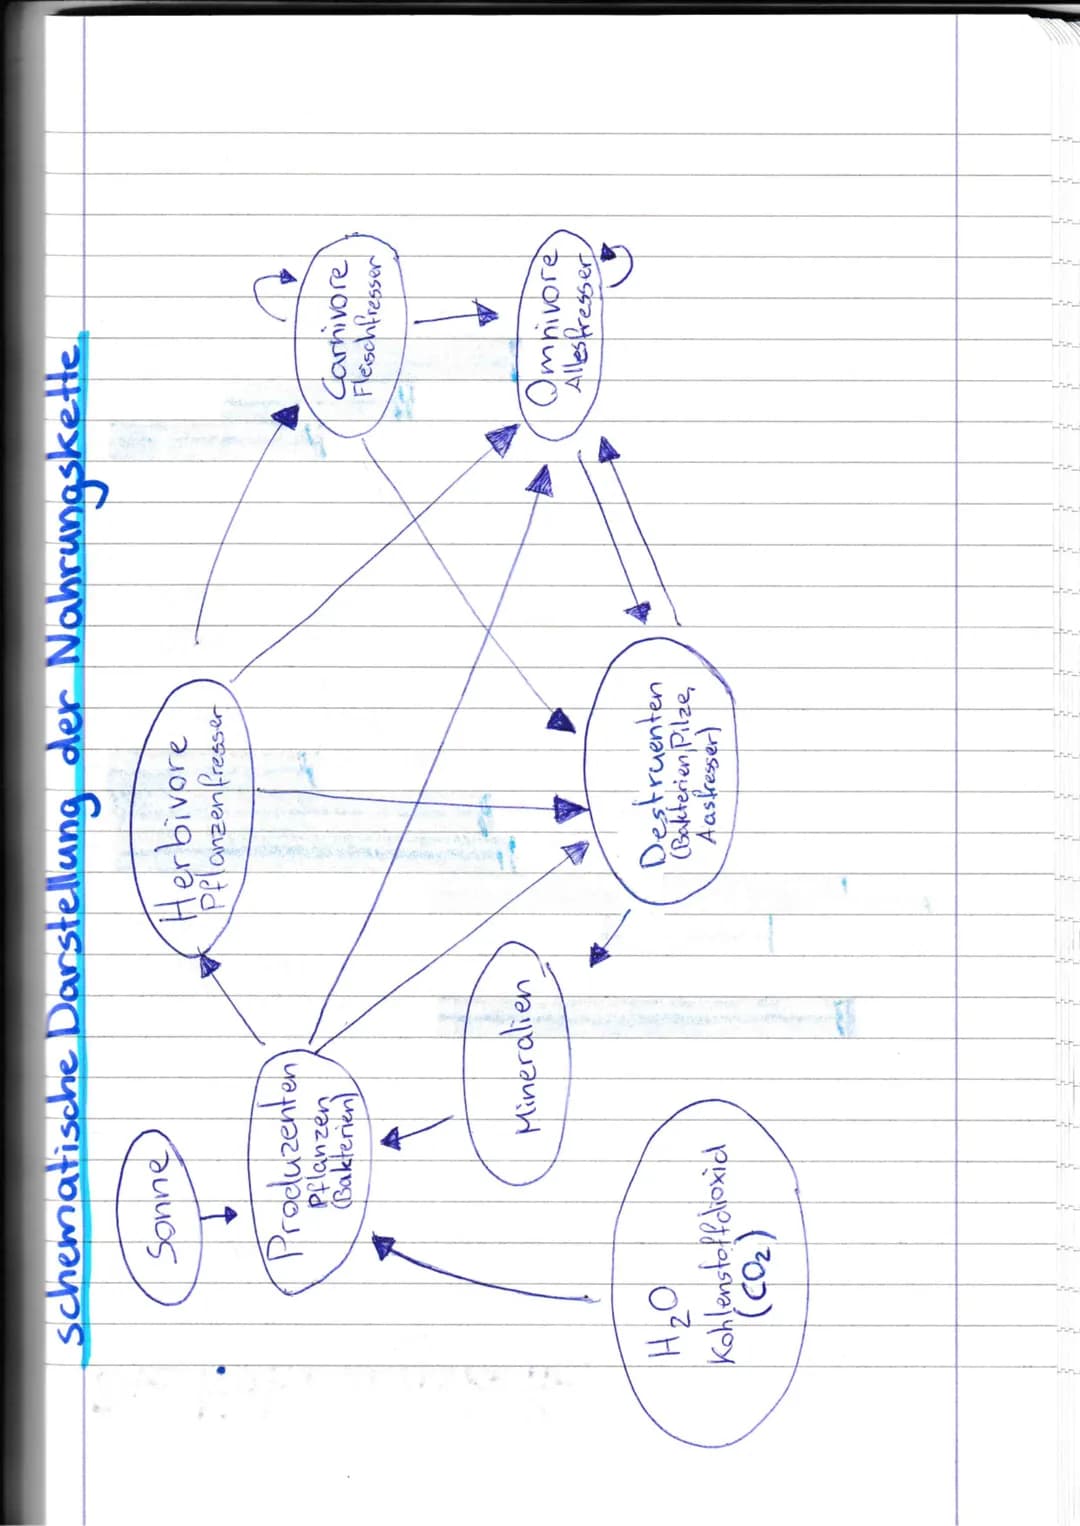 schematische Darstellung der Nahrungskette
Sonne
Produzenten
Pflanzen
(Bakterien)
Herbivore
Pflanzenfresser
Carnivore
Fleischfresser
Omnivore
Allesfresser
Destruenten
(Bakterien, Pilze,
Aasfresser)
Mineralien
H₂O
Kohlenstoffdioxid
(CO₂)